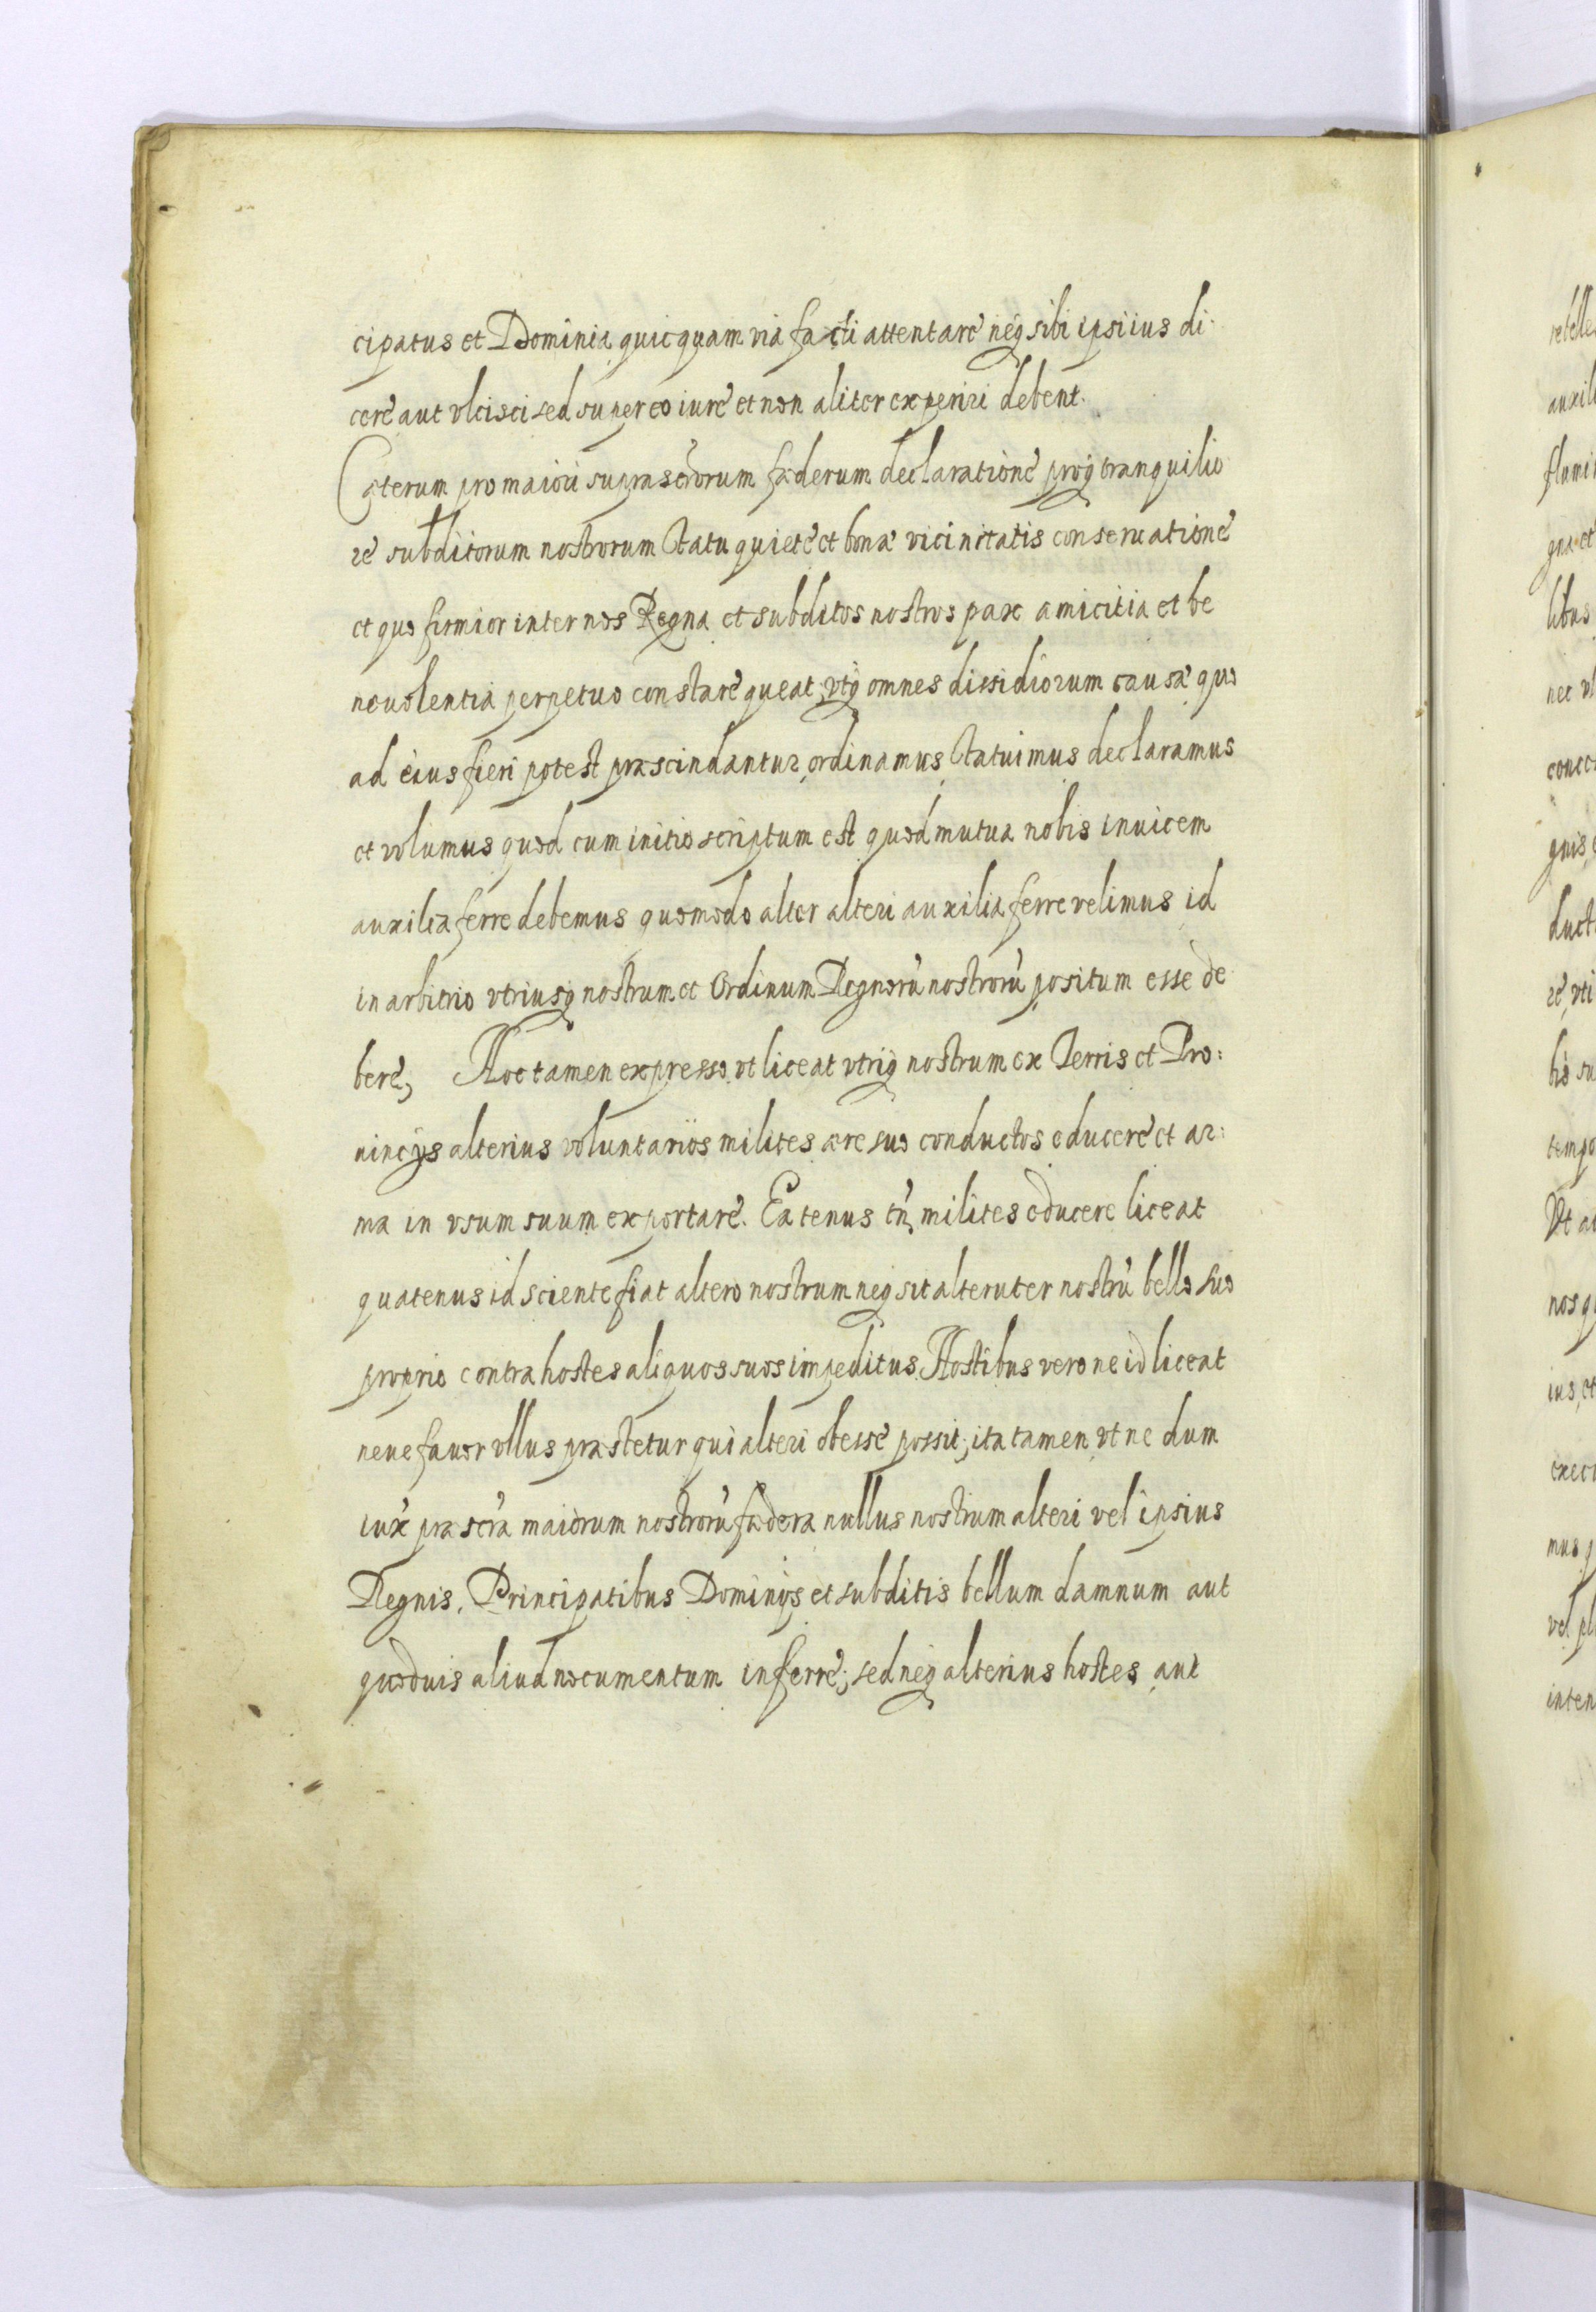 cipatus et Dominia quicquam via facti attentare neq sibi ipsi ius di-
cere aut vlcisci sed super eo iure et non aliter experiri debent.
Cæterum pro maiori suprascr̃orum fæderum declaratione proq tranquilio
re subditorum nostrorum statu quiete et bonæ vicinitatis conseruatione
et quo firmior inter nos Regna et subditos nostros pax amicitia et be
neuolentia perpetuo constare queat, vtq omnes dissidiorum causæ quo
ad eius fieri potest præscindantur, ordinamus, statuimus declaramus
et volumus quod cum initio scriptum est quod mutua nobis inuicem
auxilia ferre debemus quomodo alter alteri auxilia ferre velimus id
in arbitrio vtriusq nostrum et Ordinum Regnorũ nostrorũ positum esse de
bere, Hoc tamen expresso, vt liceat vtriq nostrum ex Terris et Pro:
uincijs alterius voluntarios milites ære suo conductos educere et ar:
ma in vsum suum exportare. Eatenus tñ milites educere liceat
quatenus id sciente fiat altero nostrum neq sit alteruter nostrũ bello suo
proprio contra hostes aliquos suos impeditus. Hostibus vero ne id liceat
neue fauor vllus præstetur qui alteri obesse possit, ita tamen vt ne dum
iux̃ præscr̃a maiorum nostrorũ fædera nullus nostrum alteri vel ipsius
Regnis, Principatibus Dominijs et subditis bellum damnum aut
quoduis aliud nocumentum inferre; sed neq alterius hostes aut